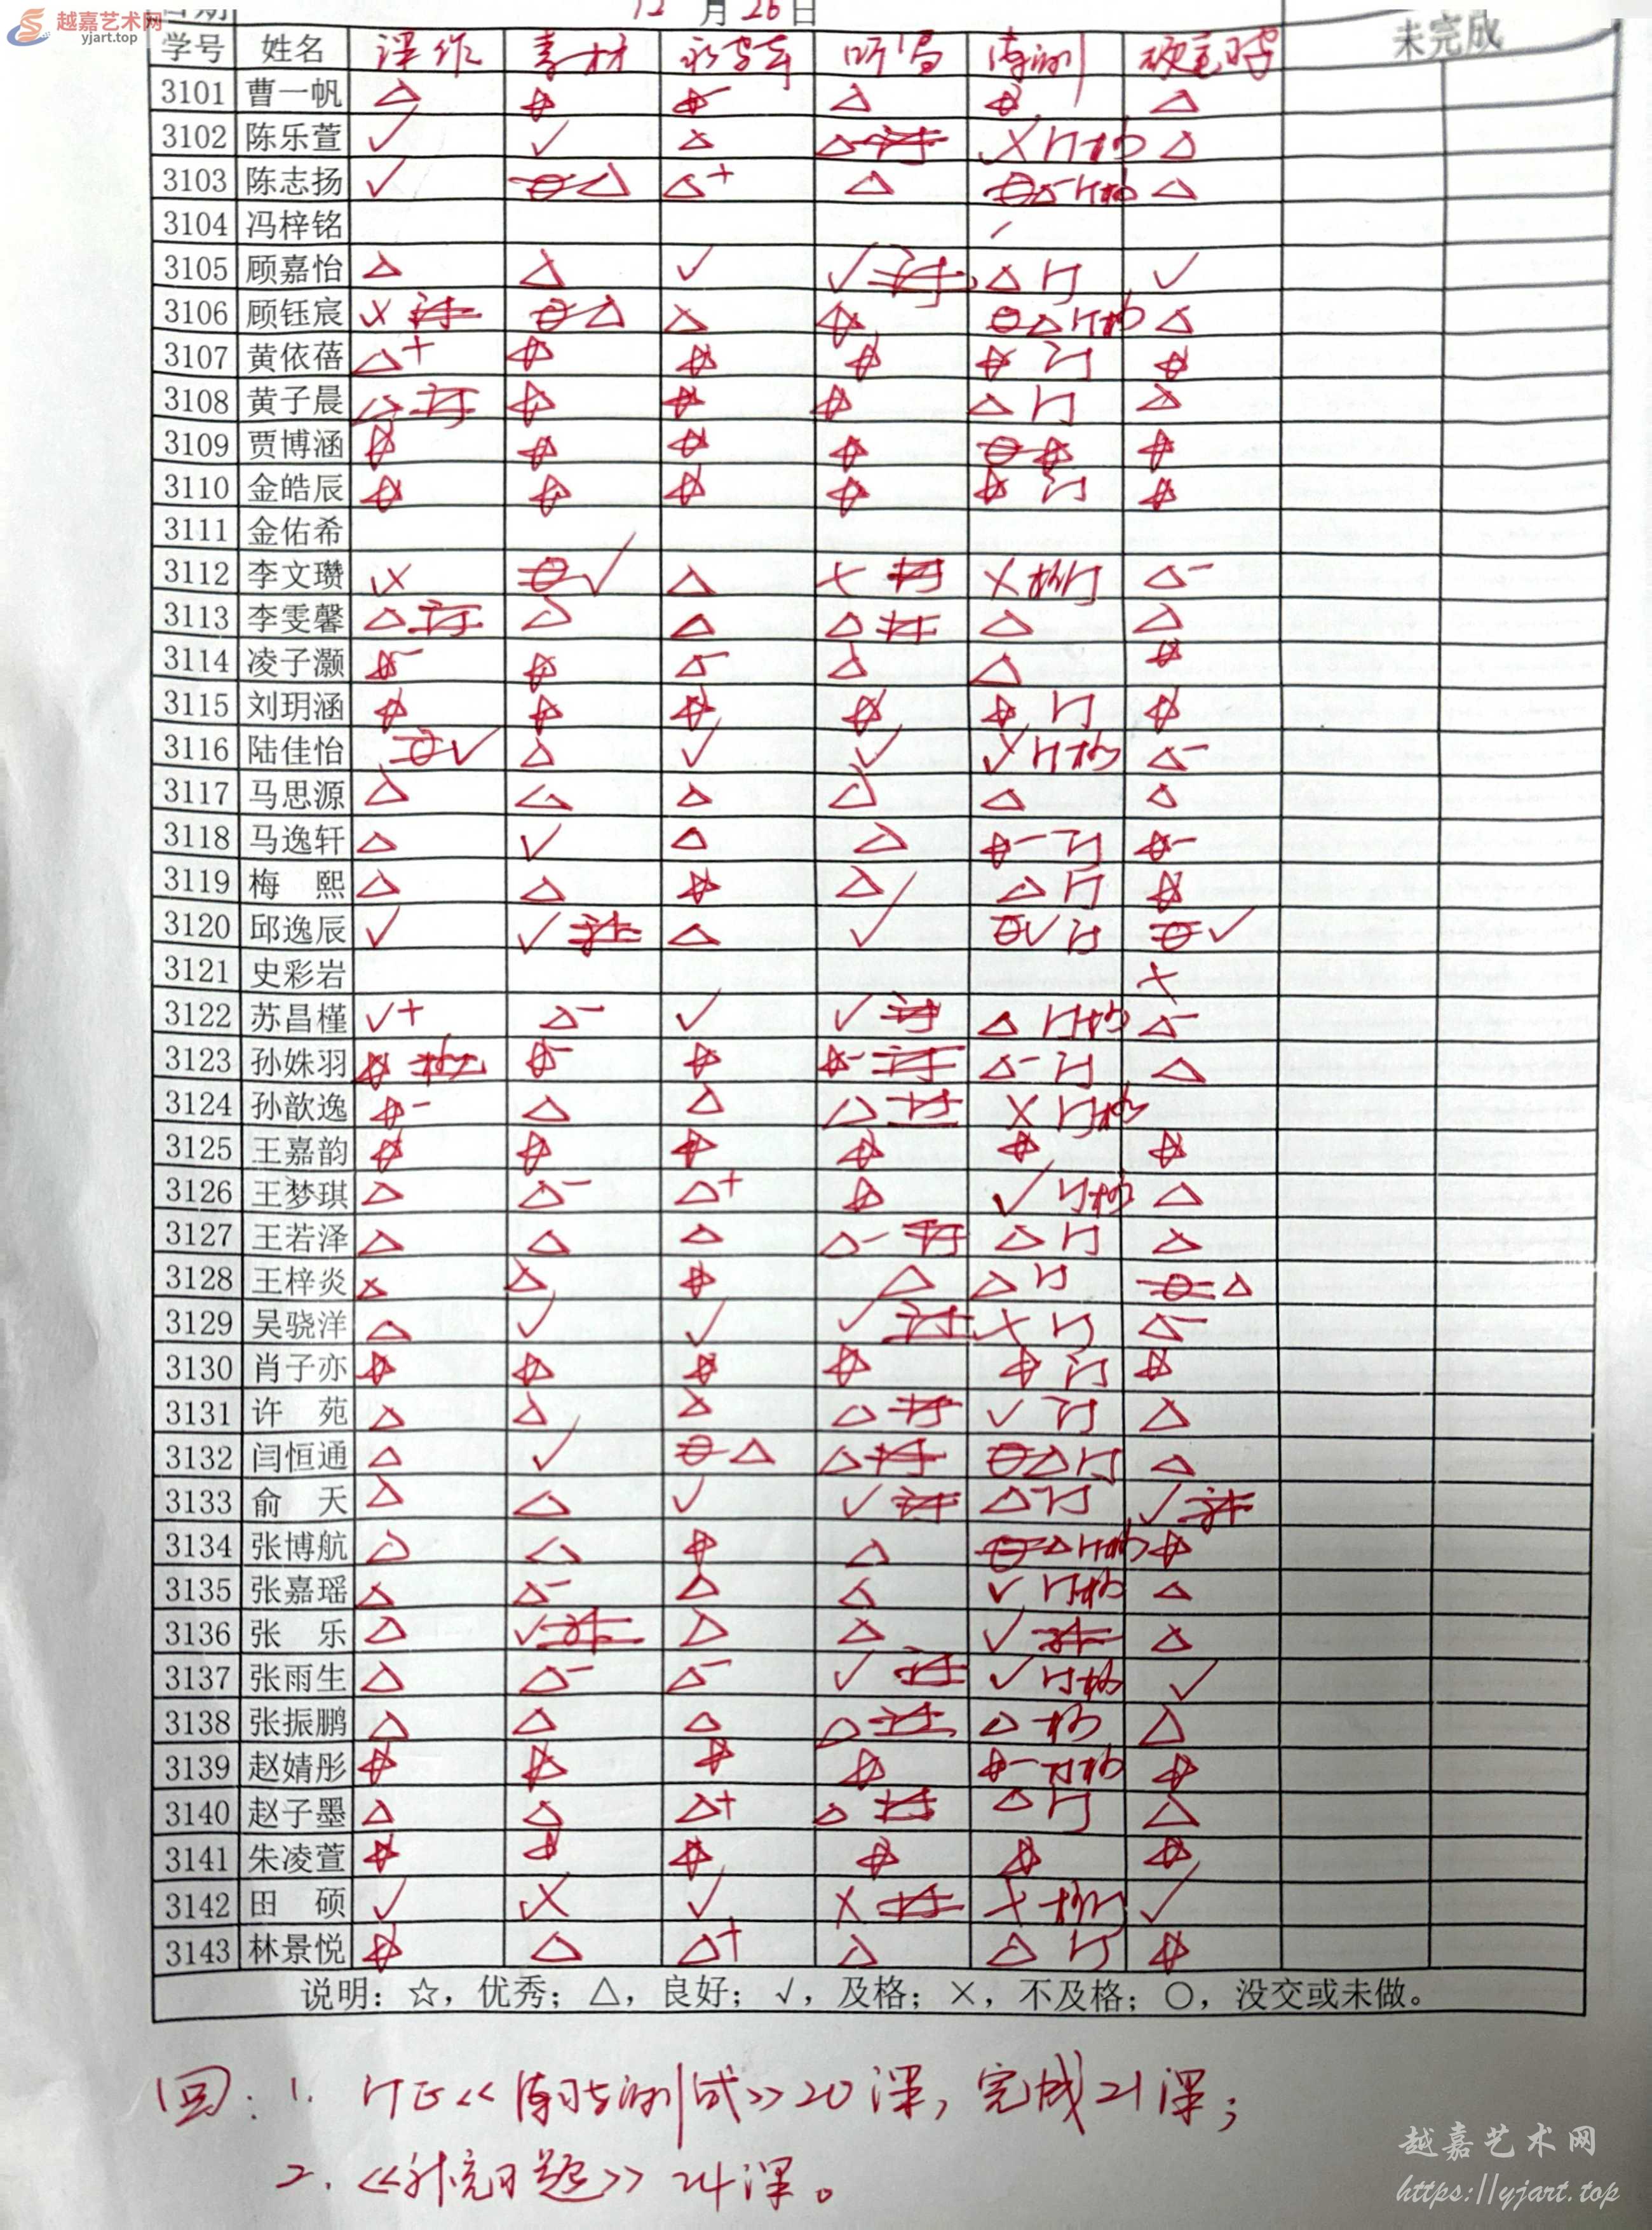 越嘉艺术网
yjart.top
12 月 26 日
学号 姓名 课作 素材 听写 未完成
3101 曹一帆 △ ☆ ☆- △ ☆ △
3102 陈乐萱 √ √ △ △ × 订 △
3103 陈志扬 √ △ △+ △ △ 订 △
3104 冯梓铭
3105 顾嘉怡 △ △ √ √ △ 订 √
3106 顾钰宸 × △ △ ☆ △ 订 △
3107 黄依蓓 △+ ☆ ☆ ☆ ☆ 订 ☆
3108 黄子晨 △ ☆ ☆ ☆ △ 订 △
3109 贾博涵 ☆ ☆ ☆ ☆ ☆ ☆
3110 金皓辰 ☆ ☆ ☆ ☆ ☆ 订 ☆
3111 金佑希
3112 李文瓒 × √ △ × × 订 △-
3113 李雯馨 △ △ △ △ △ △
3114 凌子灏 ☆- ☆ △- △ △ ☆
3115 刘玥涵 ☆ ☆ ☆ ☆ ☆ 订 ☆
3116 陆佳怡 √ △ √ √ √ 订 △-
3117 马思源 △ △ △ △ △ △
3118 马逸轩 △ √ △ △ ☆- 订 ☆-
3119 梅 熙 △ △ ☆ △ △ 订 ☆
3120 邱逸辰 √ √ △ √ √ 订 √
3121 史彩岩 ×
3122 苏昌槿 √+ △- √ √ △ 订 △-
3123 孙姝羽 ☆ ☆- ☆ ☆- △- 订 △
3124 孙歆逸 ☆- △ △ △ × 订
3125 王嘉韵 ☆ ☆ ☆ ☆ ☆ ☆
3126 王梦琪 △ △- △+ ☆ √ 订 △
3127 王若泽 △ △ △ △- △ 订 △
3128 王梓炎 △ △ ☆ △ △ 订 △
3129 吴骁洋 △ √ √ √ × 订 △-
3130 肖子亦 ☆ ☆ ☆ ☆ ☆ 订 ☆
3131 许 苑 △ △ △ △ √ 订 △
3132 闫恒通 △ √ △ △ △ 订 △
3133 俞 天 △ △ √ √ △ 订 √
3134 张博航 △ △ ☆ △ △ 订 ☆
3135 张嘉瑶 △ △- △ △ √ 订 △
3136 张 乐 △ √ △ △ √ △
3137 张雨生 △ △- △- √ √ 订 √
3138 张振鹏 △ △ △ △ △ △
3139 赵婧彤 ☆ ☆ ☆ ☆ ☆- 订 ☆
3140 赵子墨 △ △ △+ △ △ 订 △
3141 朱凌萱 ☆ ☆ ☆ ☆ ☆ ☆
3142 田 硕 √ × √ × × 订 √
3143 林景悦 ☆ △ △+ △ △ 订 ☆
说明：☆，优秀；△，良好；√，及格；×，不及格；○，没交或未做。
回：1. 订正《测》20课，完成21课；
2.《题》24课。
越嘉艺术网
https://yjart.top